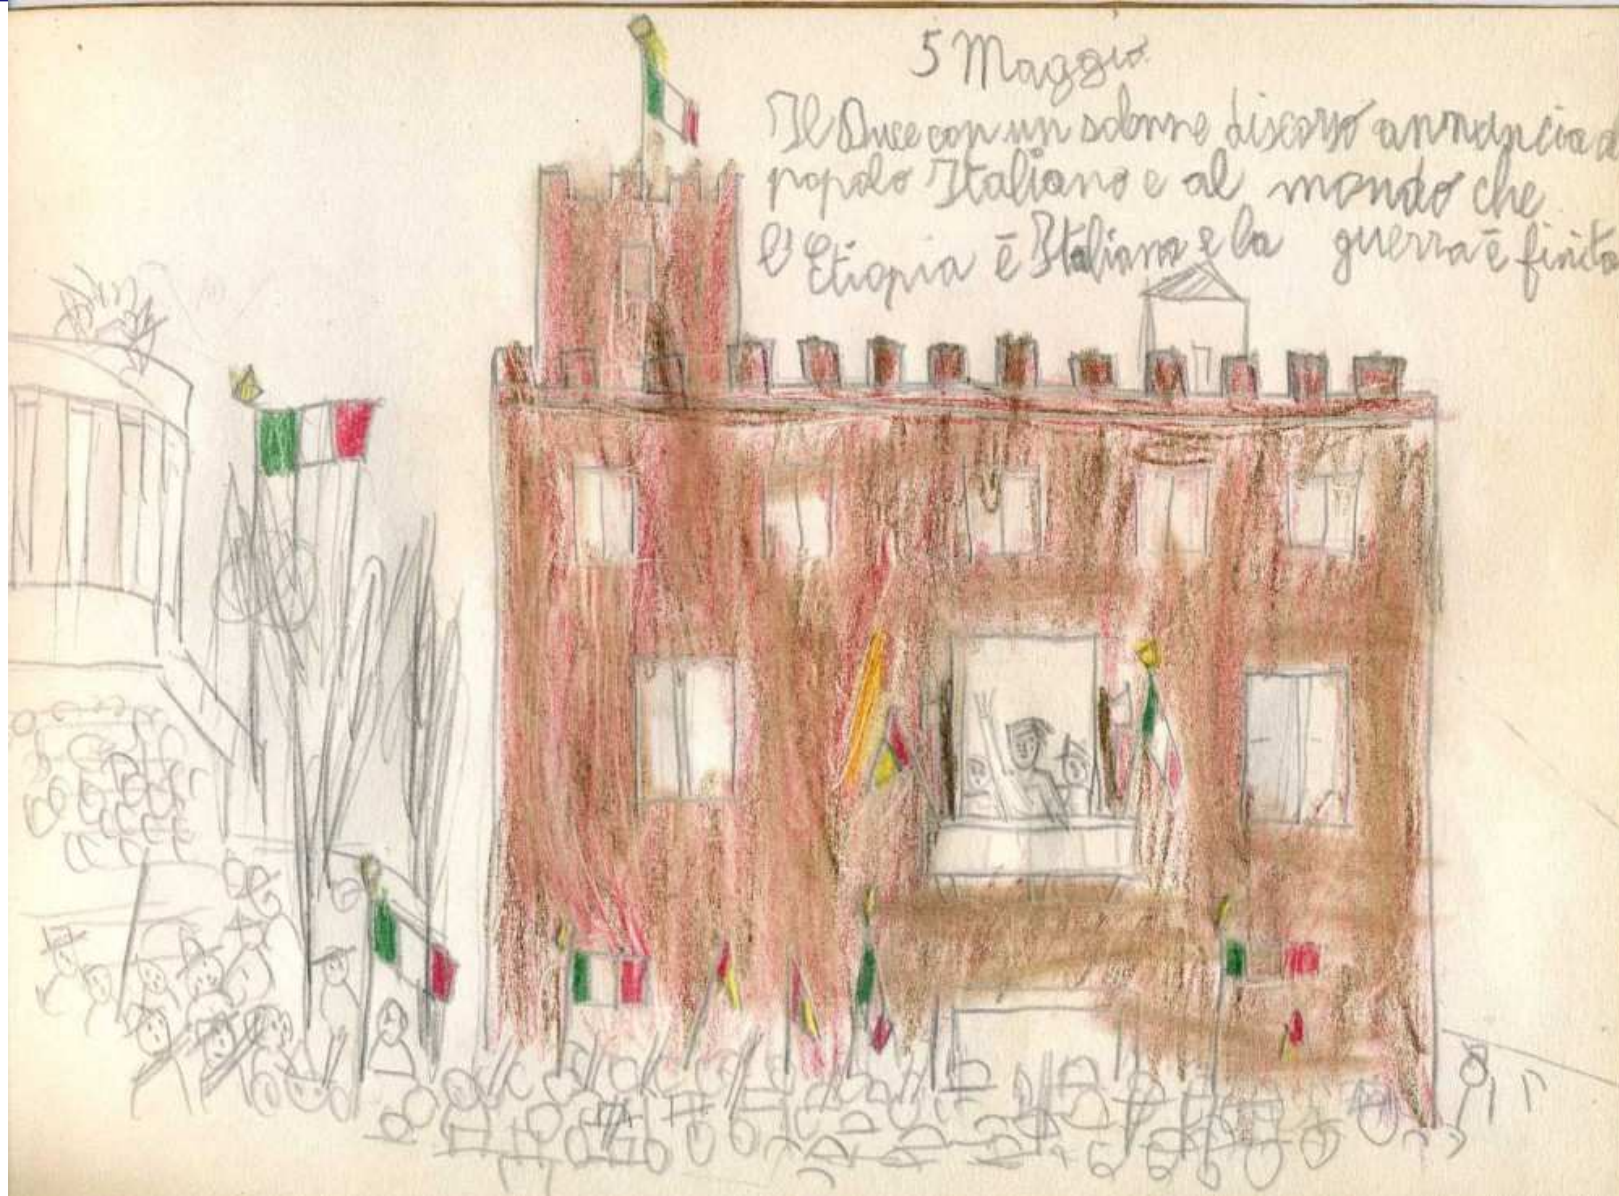 5 Maggio
Il Duce con un solenne discorso annuncia a
popolo Italiano e al mondo che
l'Etiopia è Italiana e la guerra è finita